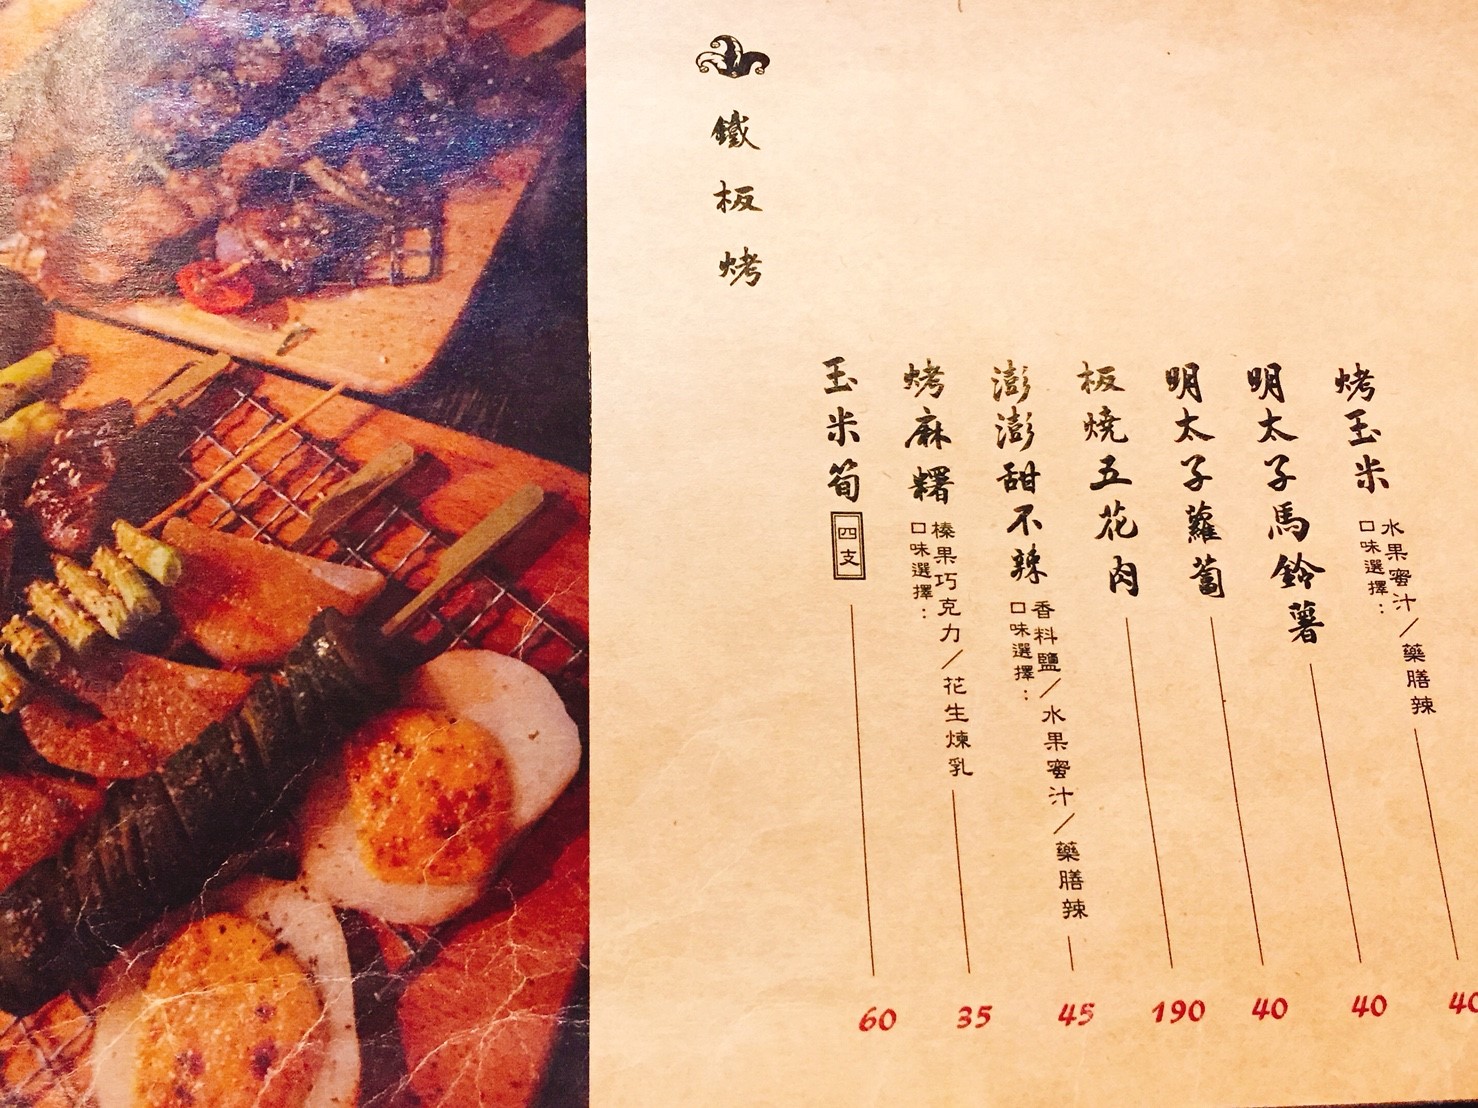 鐵板烤
玉米筍 四支 60
烤麻糬
口味選擇：
榛果巧克力／花生煉乳 35
澎澎甜不辣
口味選擇：
香料鹽／水果蜜汁／藥膳辣 45
板燒五花肉 190
明太子蘿蔔 40
明太子馬鈴薯 40
烤玉米
口味選擇：
水果蜜汁／藥膳辣 40